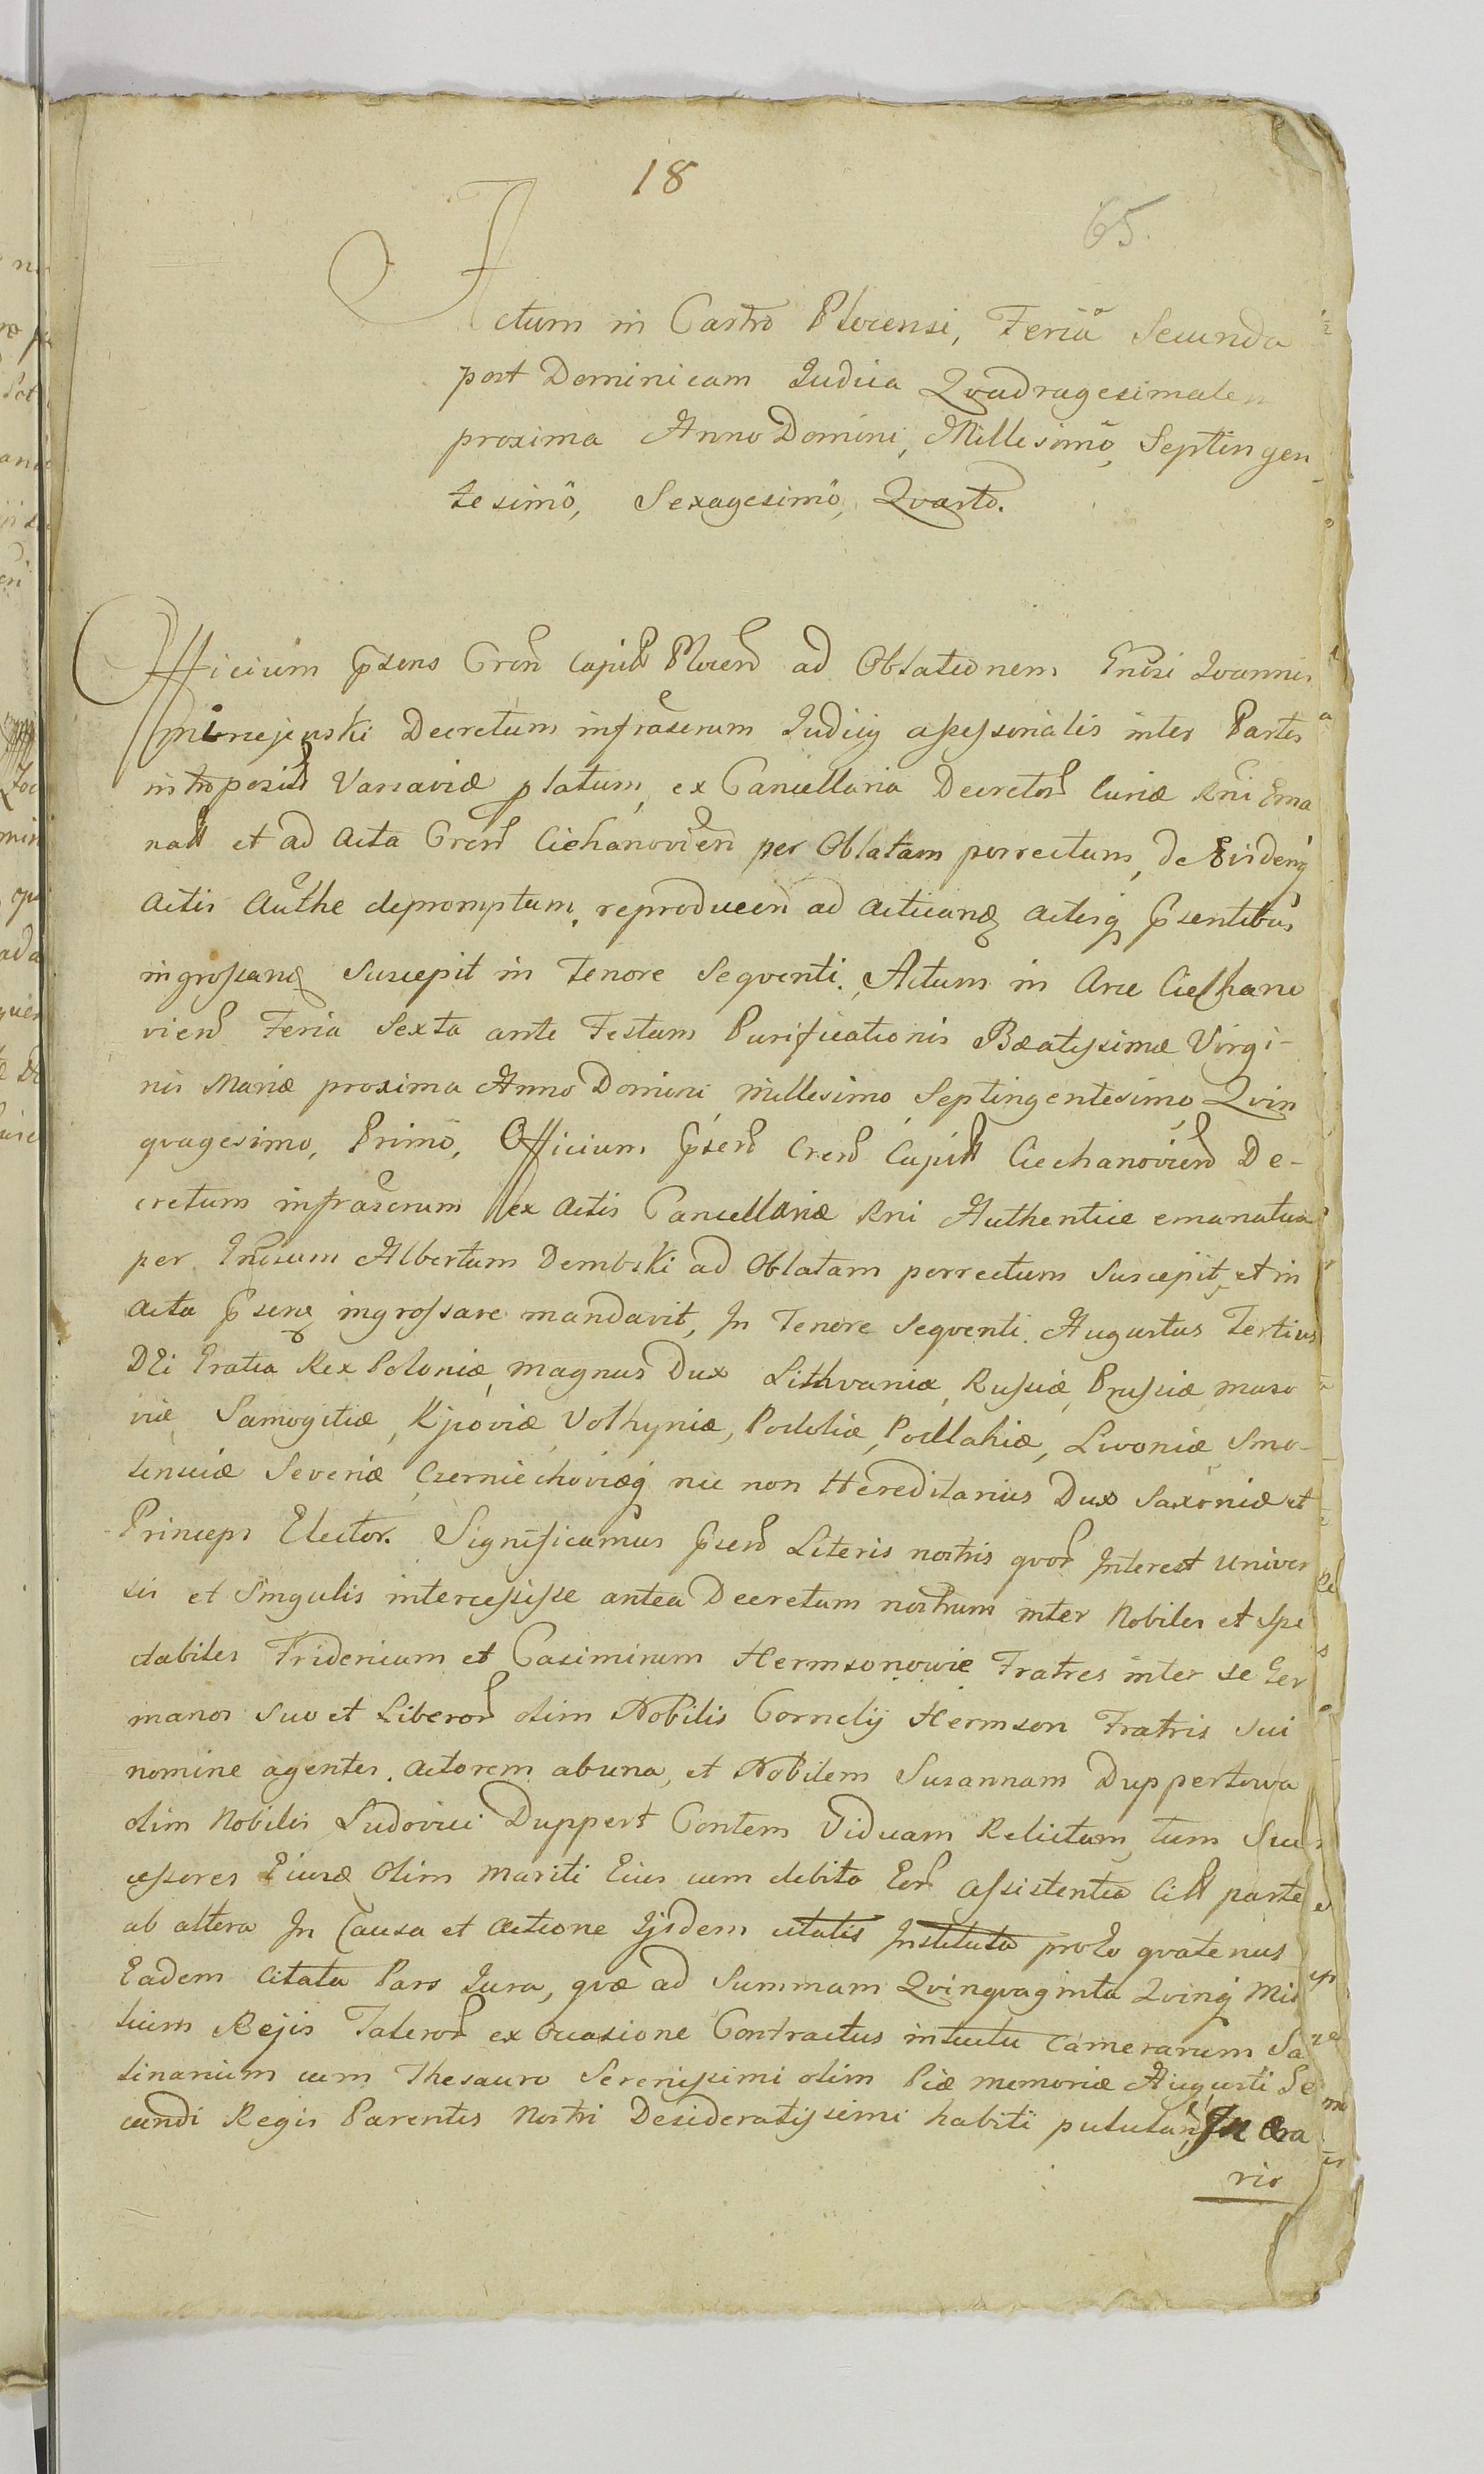 18
65.
Actum in Castro Plocensi, Feriâ Secunda
post Dominicam Judica Qvadragesimalem
proxima Anno Domini, Millesimô, Septingen
tesimô, Sexagesimô, Qvarto.
Officium Psens Cren Capitl Plocen ad Oblationem Gnosi Joannis
Decretum infrascrum Judicij assessorialis inter Partes
introposit Varsaviæ platum, ex Cancellaria Decretor Curiæ Rni Ema
nat et ad Acta Cren Ciechanovien per Oblatam porrectum, de Eisdemq
Actis Authe depromptum, reproducen ad acticanq actisq Psentibus
ingrossanq Suscepit in Tenore Seqventi. Actum in Arce Ciechano
vien Feria Sexta ante Festum Purificationis Bæatissimæ Virgi-
nis Mariæ proxima Anno Domini Millesimo Septingentesimo Qvin
qvagesimo, Primô, Officium Psen Cren Capitl Ciechanovien De-
cretum infrascrum ex Actis Cancellariæ Rni Authentice emanatum
per Gnosum Albertum Dembski ad Oblatam porrectum Suscepit, et in
Acta Psenq ingrossare mandavit, In Tenore Seqventi. Augustus Tertius
DEi Gratia Rex Poloniæ, Magnus Dux Lithvaniæ, Russiæ, Prussiæ, Maso
viæ, Samogitiæ, Kijoviæ, Volhyniæ, Podoliæ, Podlahiæ, Livoniæ, Smo-
lensciæ Severiæ Czerniechoviæq nec non Hereditarius Dux Saxoniæ et
Princeps Elector. Significamus Psen Literis nostris qvor Interest univer
sis et Singulis intercessisse antea Decretum nostrum inter Nobiles et Spe
ctabiles Fridericum et Casimirum Hermsonowie Fratres inter se Ger
manos Suo et Liberor olim Nobilis Cornelij Hermson Fratris Sui
nomine agentes. Actorem abuna, et Nobilem Susannam Duppertowa
olim Nobilis Ludovici Duppert Contem Viduam Relictam, tum Suc
cessores Eiusq Olim Mariti Eius cum debita Eor assistentia Citt parte
ab altera In Causa et Actione Ijsdem citatis Instituta provo qvatenus
Eadem Citata Pars Jura, qvæ ad Summam Qvinqvaginta Qvinq Mil
lium Rejis Taleror ex occasione Contractus intuitu Camerarum Sa
linarium cum Thesauro Serenissimi olim Piæ memoriæ Augusti Se
cundi Regis Parentis Nostri Desideratissimi habiti In Æra
rio